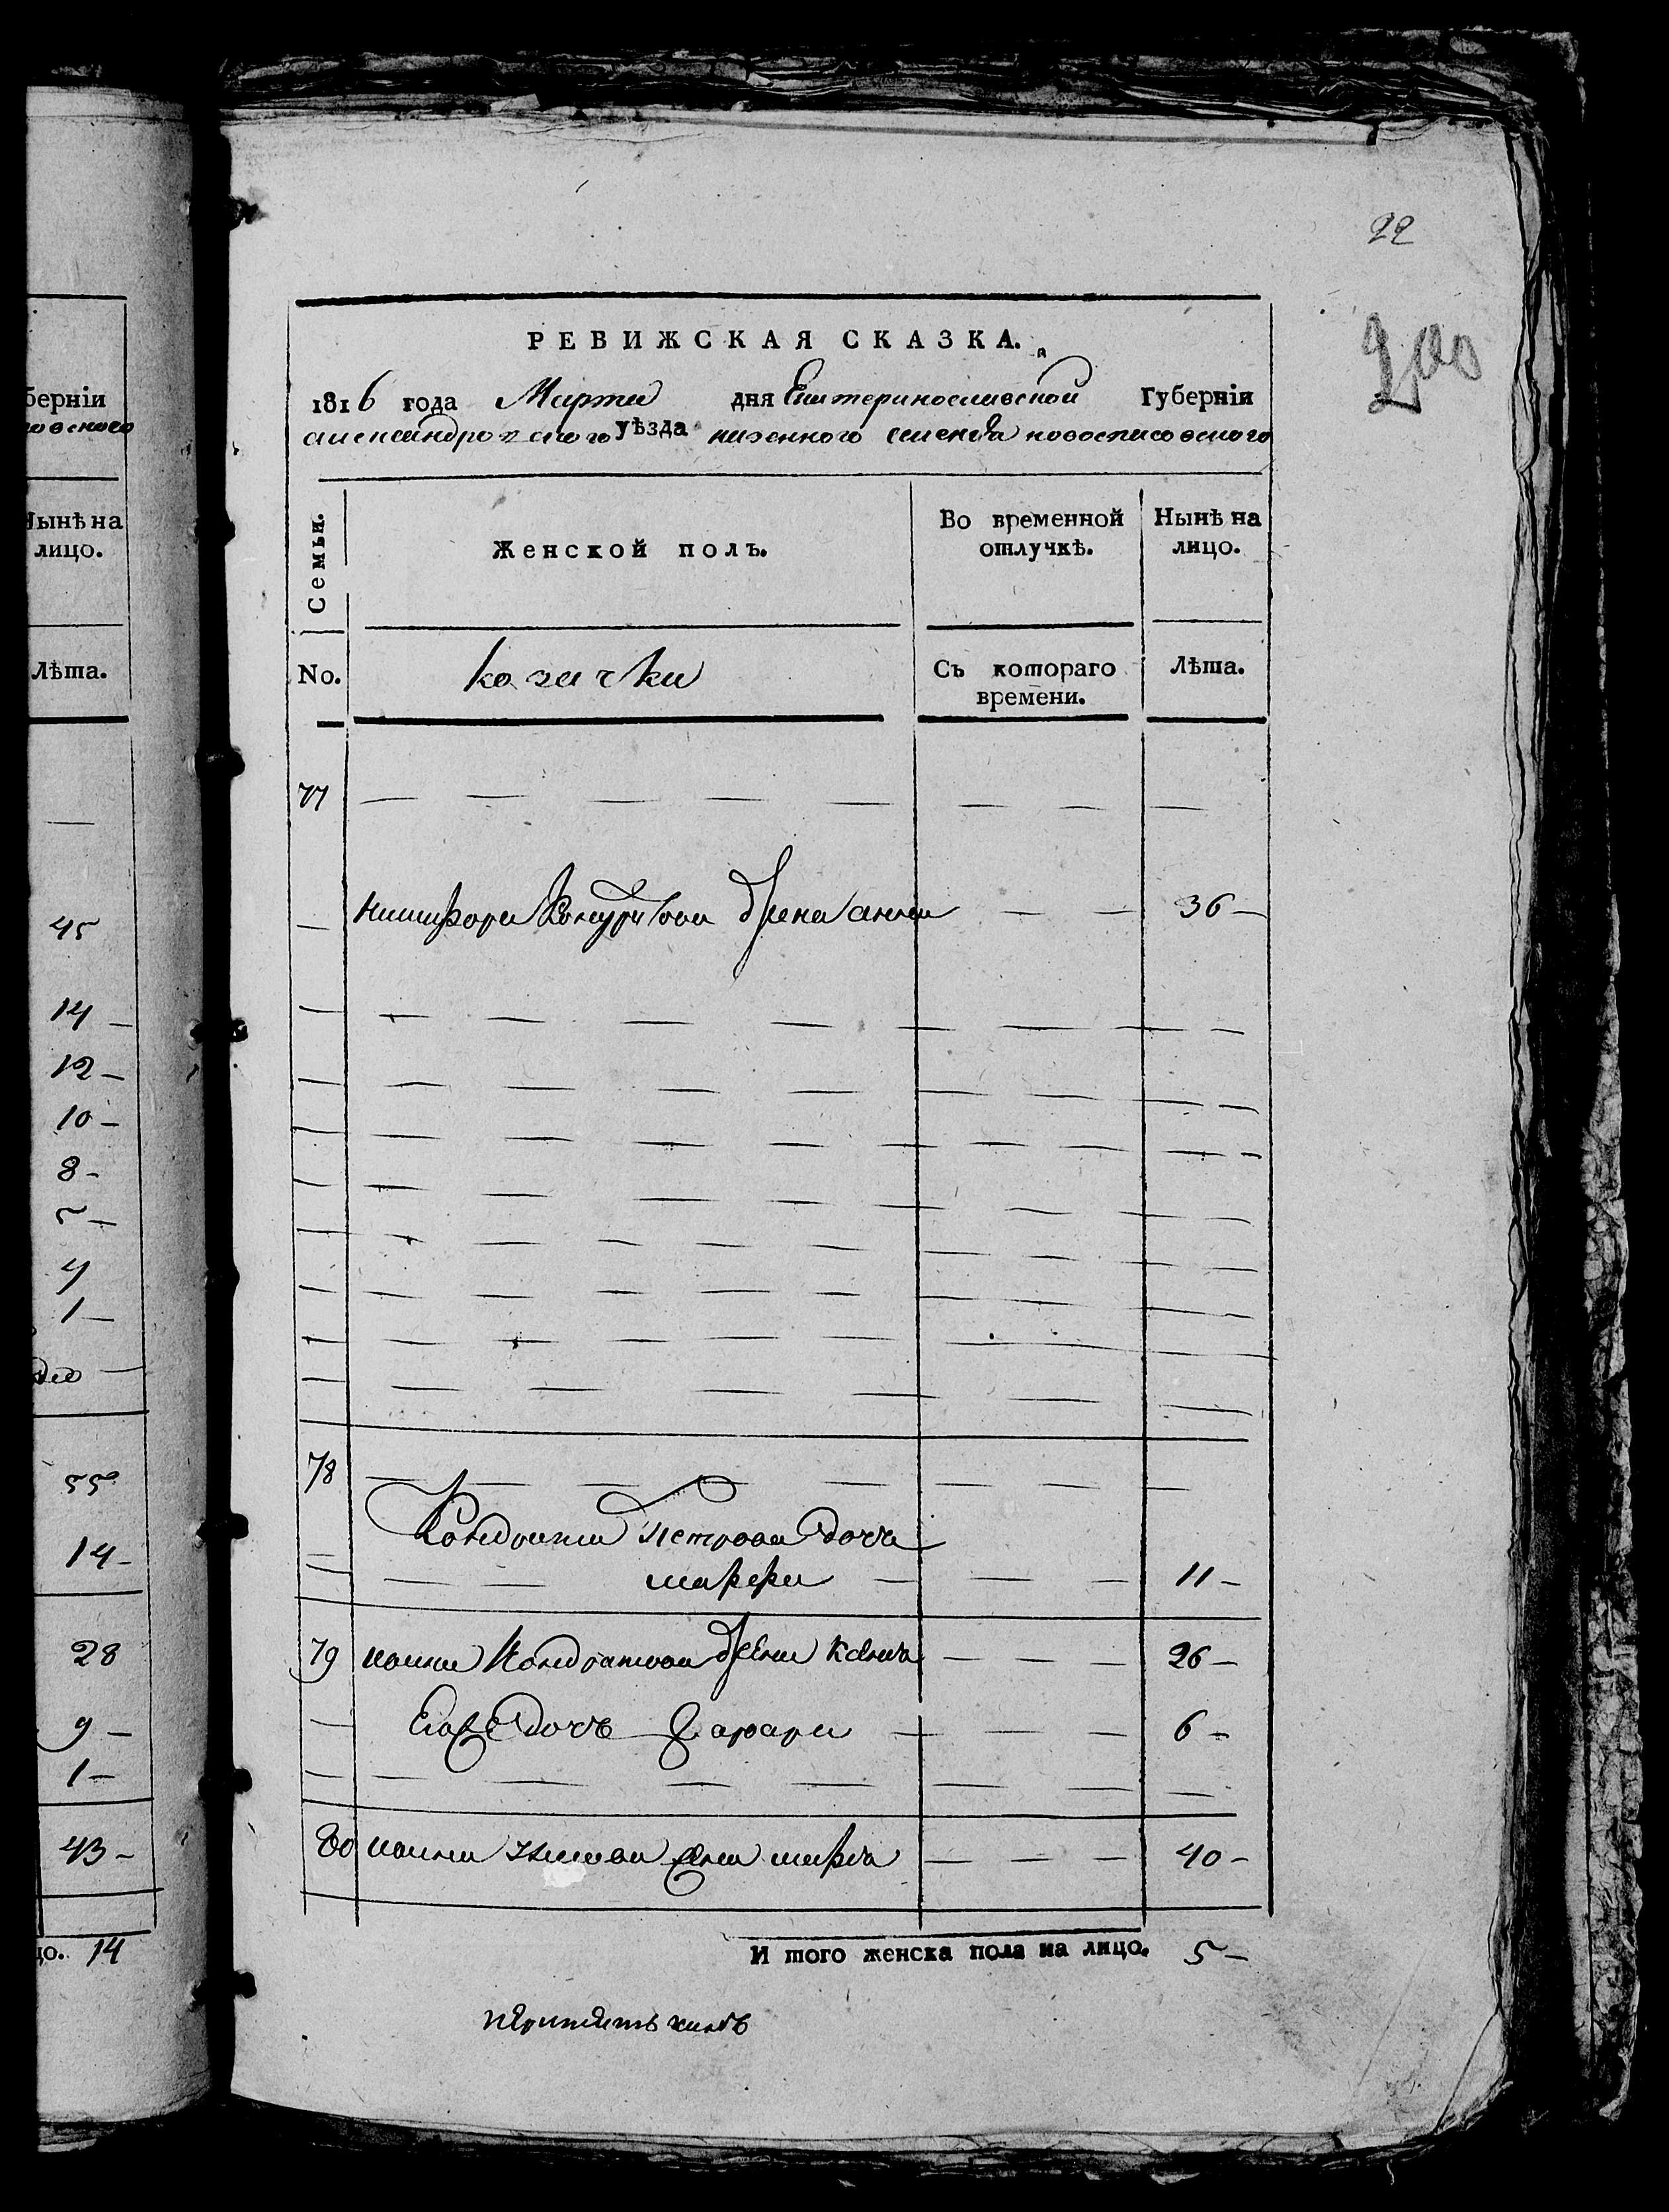 22
200
РЕВИЖСКАЯ СКАЗКА.
1816 года Марта дня Екатеринославской Губерніи
александровского уѣзда казенного селенія новоспасовского
Семьи. Женской полъ. Во временной отлучкѣ. Нынѣ на лицо.
No. козачки Съ котораго времени. Лѣта.
77
никифора жена анна 36
78
Кондрата Петрова дочь
марфа 11
79 ивана Кондратова жена 26
Его дочь 6
80 ивана жена марфа 40
И того женска пола на лицо. 5
берніи
Нынѣ на
лицо.
Лѣта.
45
14
12
10
8
5
4
1
55
14
28
9
1
43
цо. 14